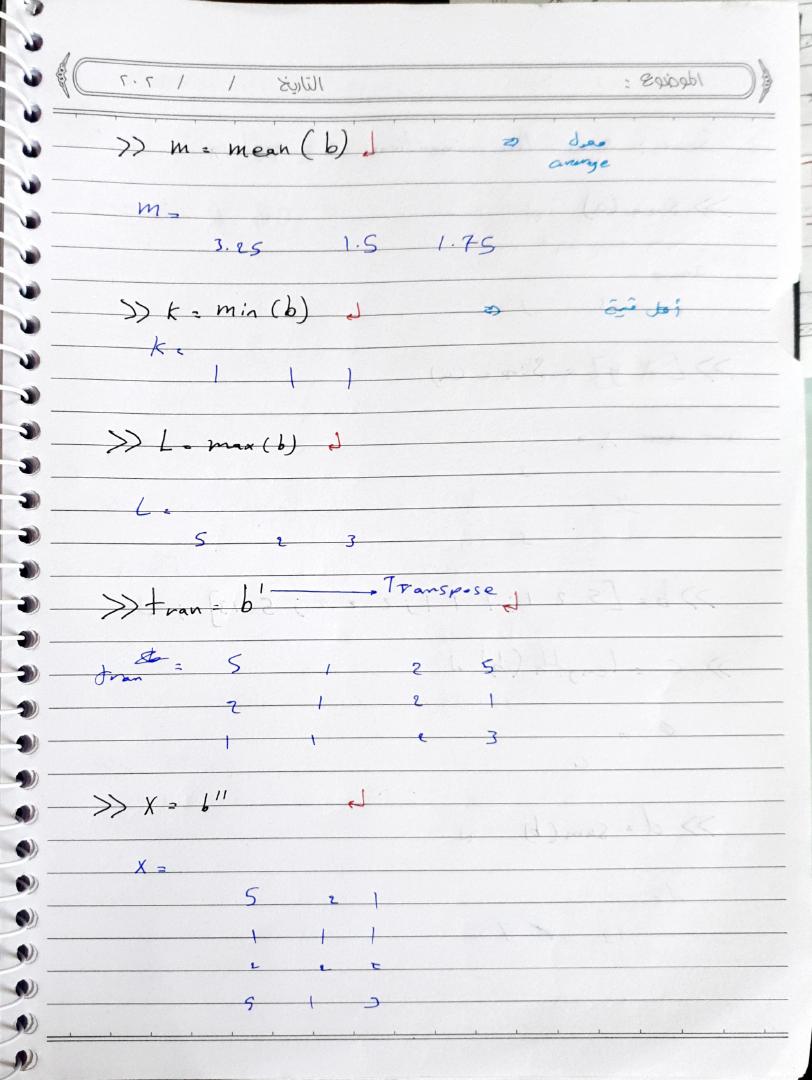 الموضوع : التاريخ / / ٢٠٢
>> m = mean (b) ↲ ⇒ معدل
average
m =
3.25 1.5 1.75
>> k = min (b) ↲ ⇒ أقل قيمة
k =
1 1 1
>> L = max (b) ↲
L =
5 2 3
>> tran = b' → Transpose ↲
tran = 5 1 2 5
2 1 2 1
1 1 2 3
>> X = b'' ↲
X =
5 2 1
1 1 1
2 2 2
5 1 3